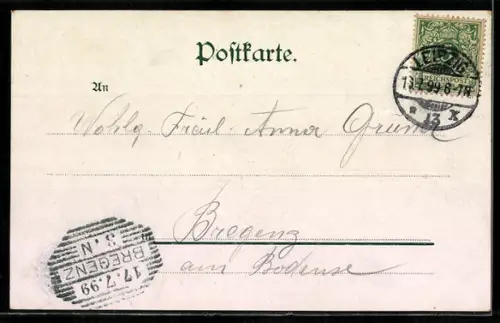 Postkarte.
LEIPZIG
REICHSPOST
13.7.99.6-7N
* 13 X
An
Wohlg. Fräul. Anna
in Bregenz
am Bodense
17.7.99
BREGENZ
3.N